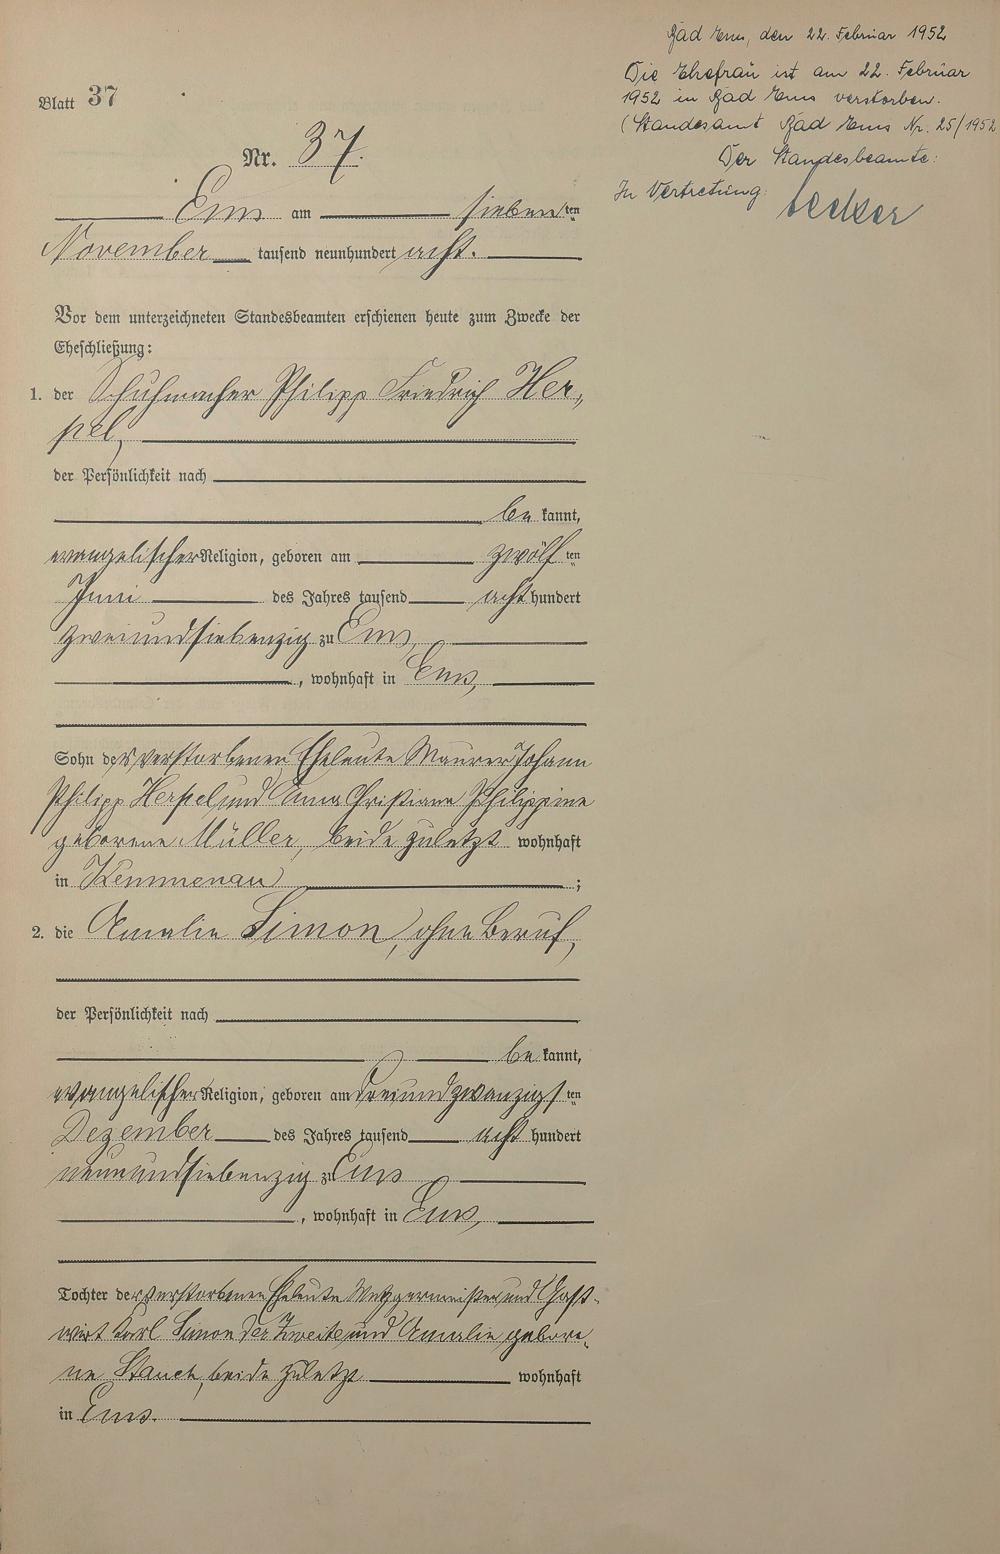 Bad Ems, den 22. Februar 1952
Die Ehefrau ist am 22. Februar
1952 in Bad Ems verstorben.
(Standesamt Bad Ems Nr. 25/1952
Der Standesbeamte:
In Vertretung:
Blatt 37
Nr. 37.
Ems am sieben ten
November tausend neunhundert acht.
Vor dem unterzeichneten Standesbeamten erschienen heute zum Zwecke der
Eheschließung:
1. der Schuhmacher Philipp Friedrich Her-
pel,
der Persönlichkeit nach
be kannt,
evangelischer Religion, geboren am zwölf ten
Juni des Jahres tausend acht hundert
zweiundsiebenzig zu Ems,
, wohnhaft in Ems,
Sohn der verstorbenen Eheleute Maurer Johann
Philipp Herpel und Anna Christiane Philippine
geborene Müller, beide zuletzt wohnhaft
in Kemmenau ;
2. die Amalie Simon, ohne Beruf,
der Persönlichkeit nach
be kannt,
evangelischer Religion, geboren am dreiundzwanzigs ten
Dezember des Jahres tausend acht hundert
neunundsiebenzig zu Ems
, wohnhaft in Ems,
Tochter der verstorbenen Eheleute Metzgermeister und Gast-
wirt Karl Simon der Zweite und Amalie gebore-
ne Stauch, beide zuletzt wohnhaft
in Ems.